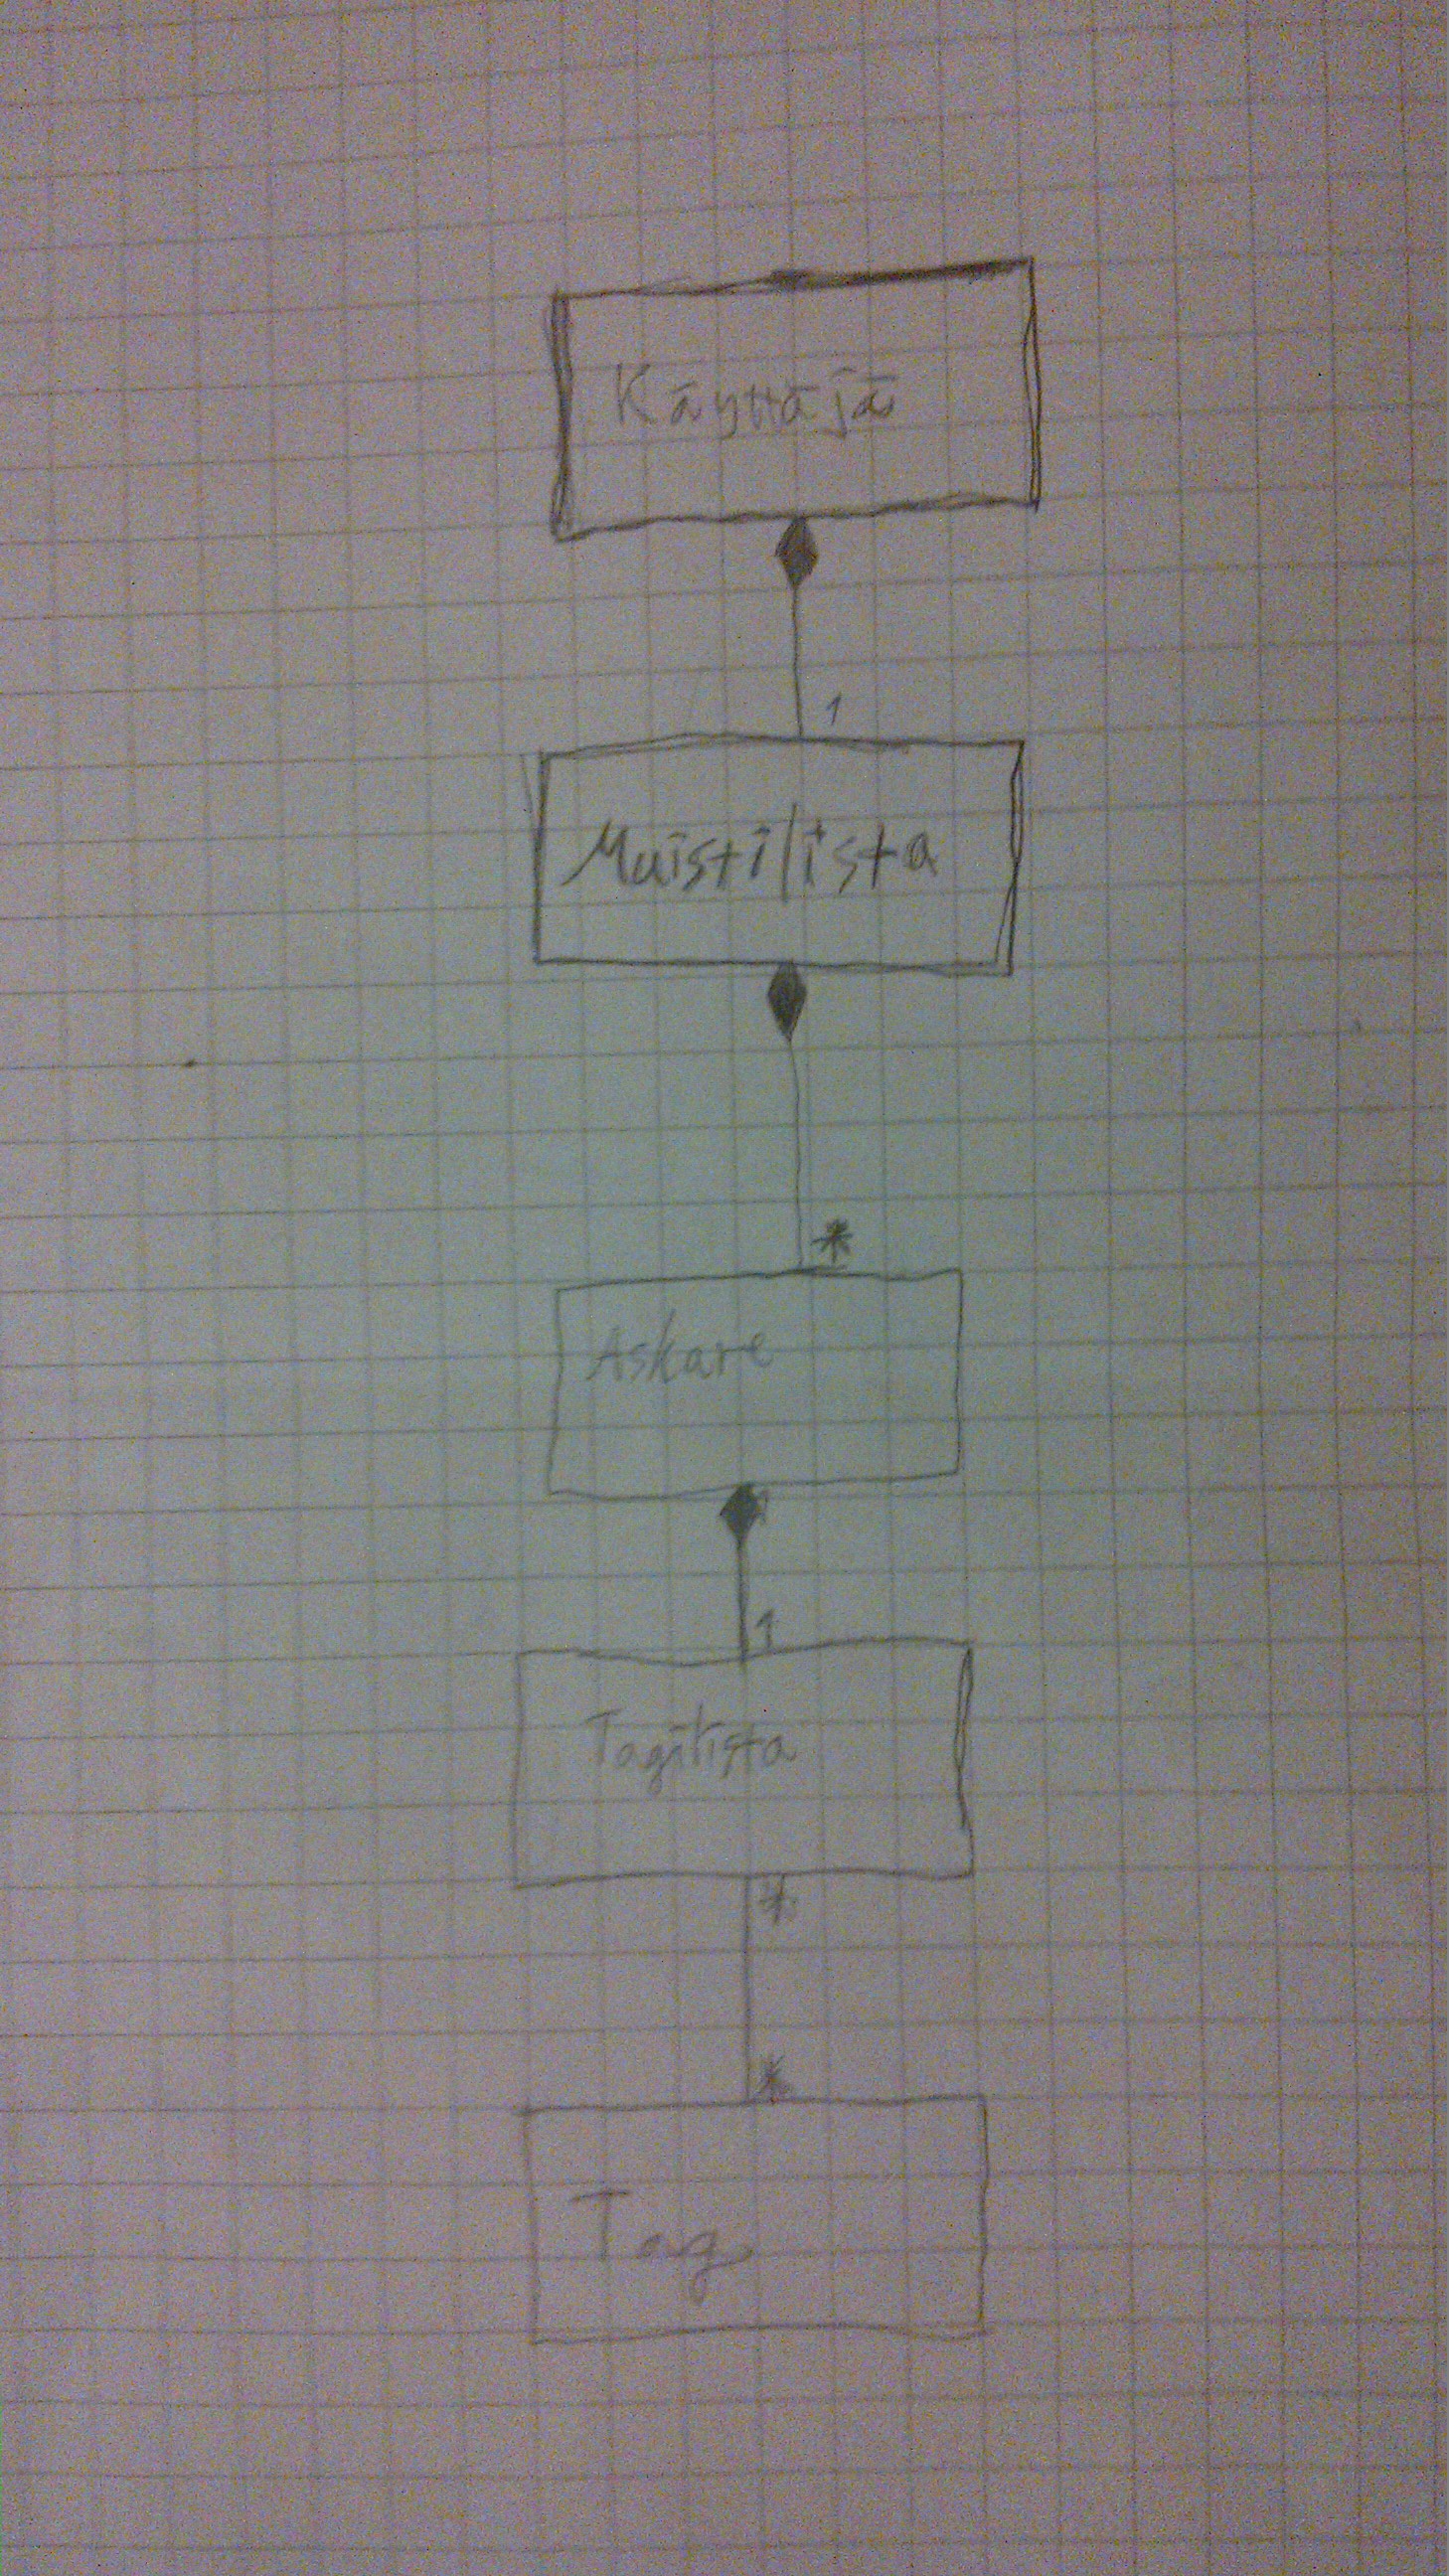 Käyttäjä
1
Muistilista
*
Askare
1
Tagilista
*
*
Tag